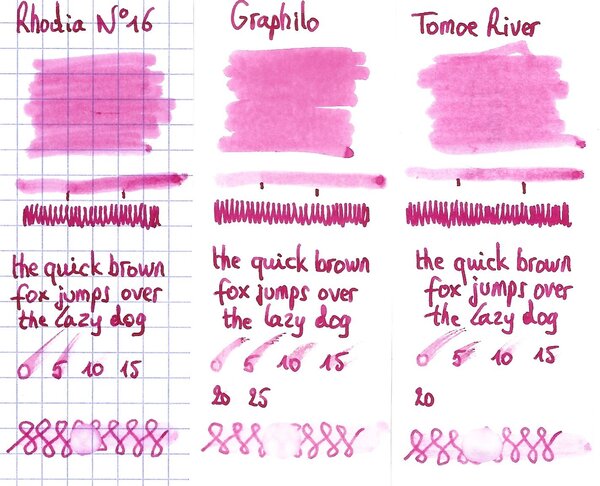 Rhodia N°16
the quick brown
fox jumps over
the lazy dog
0 5 10 15
Graphilo
the quick brown
fox jumps over
the lazy dog
0 5 10 15
20 25
Tomoe River
the quick brown
fox jumps over
the lazy dog
0 5 10 15
20